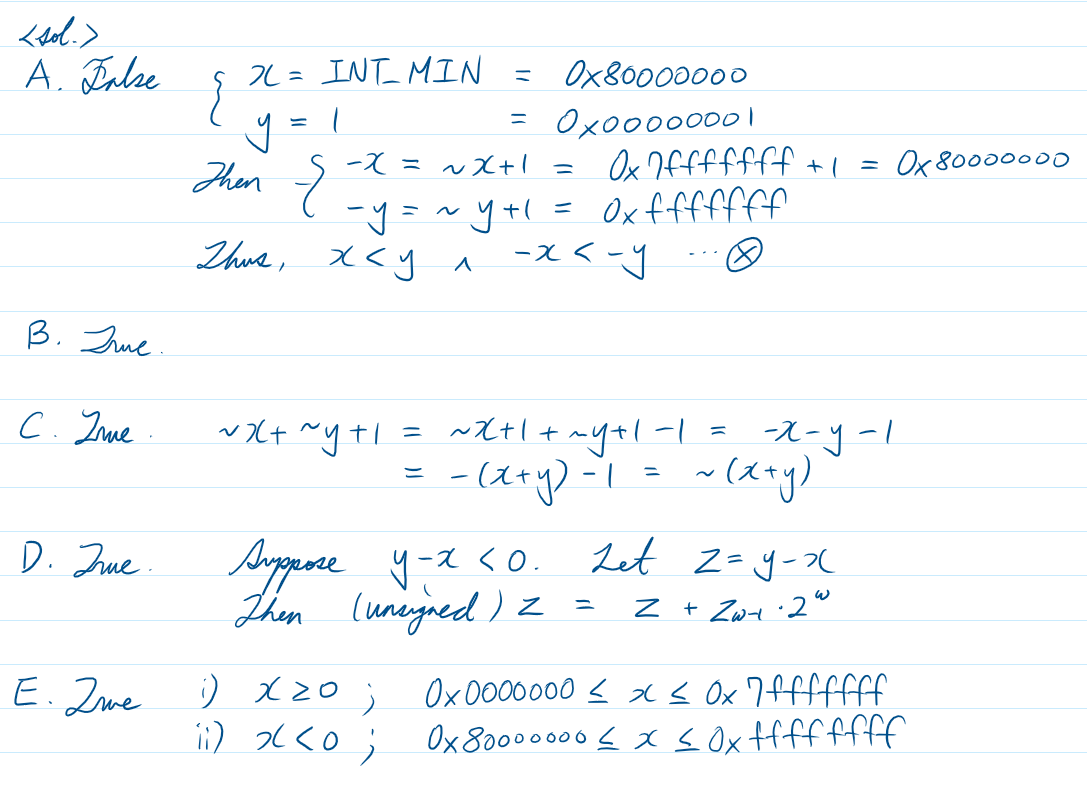 <sol.>
A. False { x = INT_MIN = 0x80000000
y = 1 = 0x00000001
Then { -x = ~x+1 = 0x7fffffff + 1 = 0x80000000
-y = ~y+1 = 0xfffffff
Thus, x < y ∧ -x < -y ... ⊗
B. True.
C. True. ~x + ~y + 1 = ~x+1 + ~y+1 -1 = -x - y - 1
= -(x+y) - 1 = ~(x+y)
D. True. Suppose y-x < 0. Let z = y-x
Then (unsigned) z = z + z_{w-1} · 2^w
E. True i) x ≥ 0 ; 0x0000000 ≤ x ≤ 0x7fffffff
ii) x < 0 ; 0x80000000 ≤ x ≤ 0xffffffff